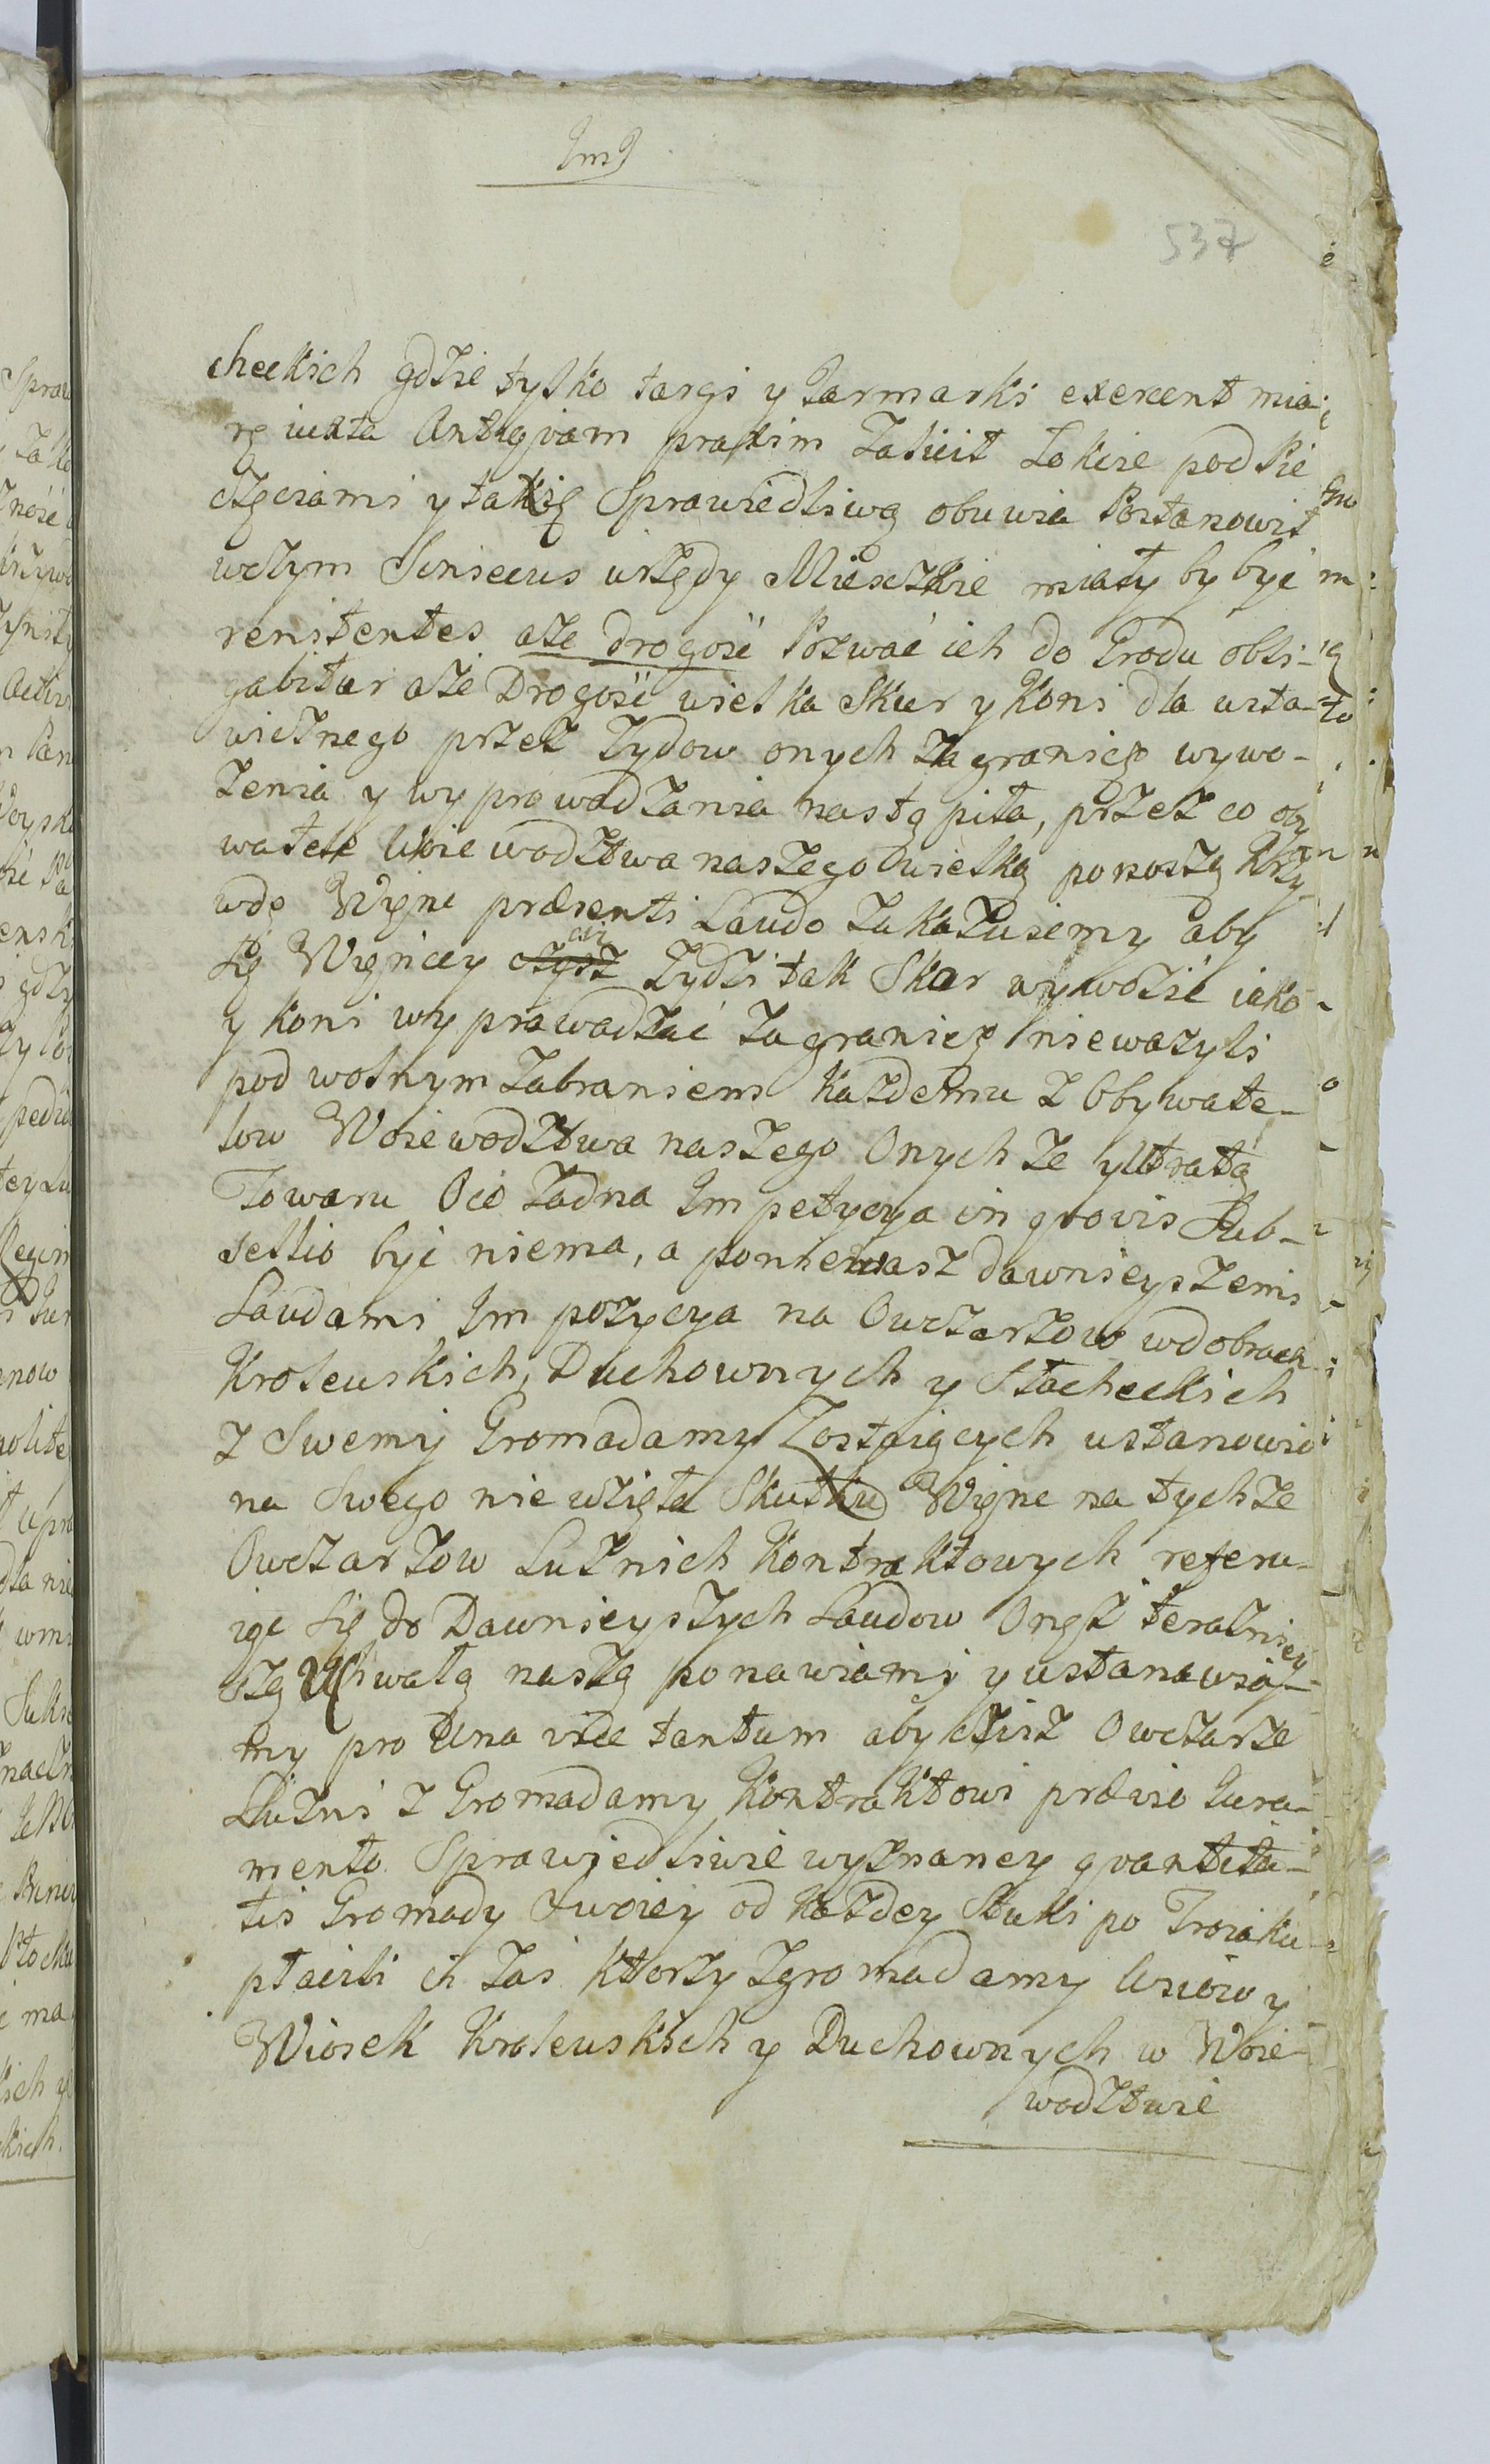 ImJ
537
checkich gdzie tylko targi y Jarmarki exercent mia-
rę iuxta Antiqvam praxim Łokcie pod Pie
częciami y takię Sprawiedliwą obuwia Postanowił
wczym urzędy Mieszkie miały by być
renitentes aże drogość Pozwać ich do Grodu obli-
gabitur aże Drogość wielka Skur y Koni dla usta-
wicznego przez Zydow onych za granicę wywo-
żenia y wyprowadzania nastąpiła, przez co oby
watele Woiewodztwa naszego wielką ponoszą Krzy
wdę Więnc præsenti Laudo zakazuiemy aby
się Więncey ciż Zydzi tak Skur wywozić iako
y koni wyprowadzać za granicę nieważyli
pod wolnym zabraniem Każdemu z Obywate-
low Woiewodztwa naszego Onychże y utratą
Towaru Oco Żadna Impetycya in qvovis Sub-
sellio być niema, a ponieważ dawnieyszemi
Laudami Impozycya na Owczarzow wdobrach
Krolewskich, Duchownych y Slacheckich
z Swemy Gromadamy Zostaiących ustanowio
na Swego niewzięła Skutku Więnc na tychże
Owczarzow Luznich Kontraktowych referu-
iąc się do Dawnieyszych Laudow Onęż teraźniey
szą Uchwałą naszą ponawiamy y ustanawia-
my pro una vice tantum aby ciż Owczarze
Luzni z Gromadamy Kontraktowi prævio Jura-
mento Sprawiedliwie wyznaney qvantita-
tis Gromady Swoiey od Każdey Stuki po Troiaku
płacili ci zaś Ktorzy zgromadamy Wsiow y
Wiosek Krolewskich y Duchownych w Woie-
wodztwie